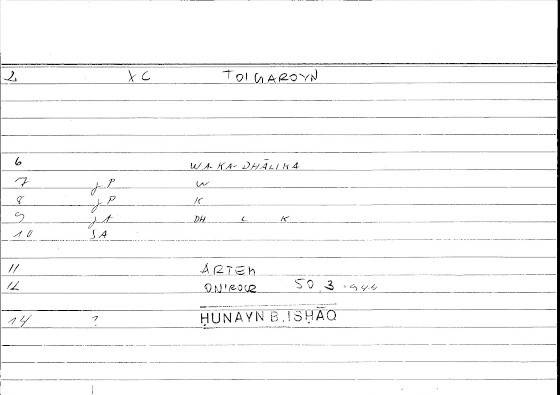 2 XC TOIGAROYN
6 WA-KA-DHĀLIKA
7 JP W
8 JP K
9 JA DH L K
10 SA
11 ARTEM
12 ONIROCR 50 3
14 ? ḤUNAYN B. ISḤĀQ